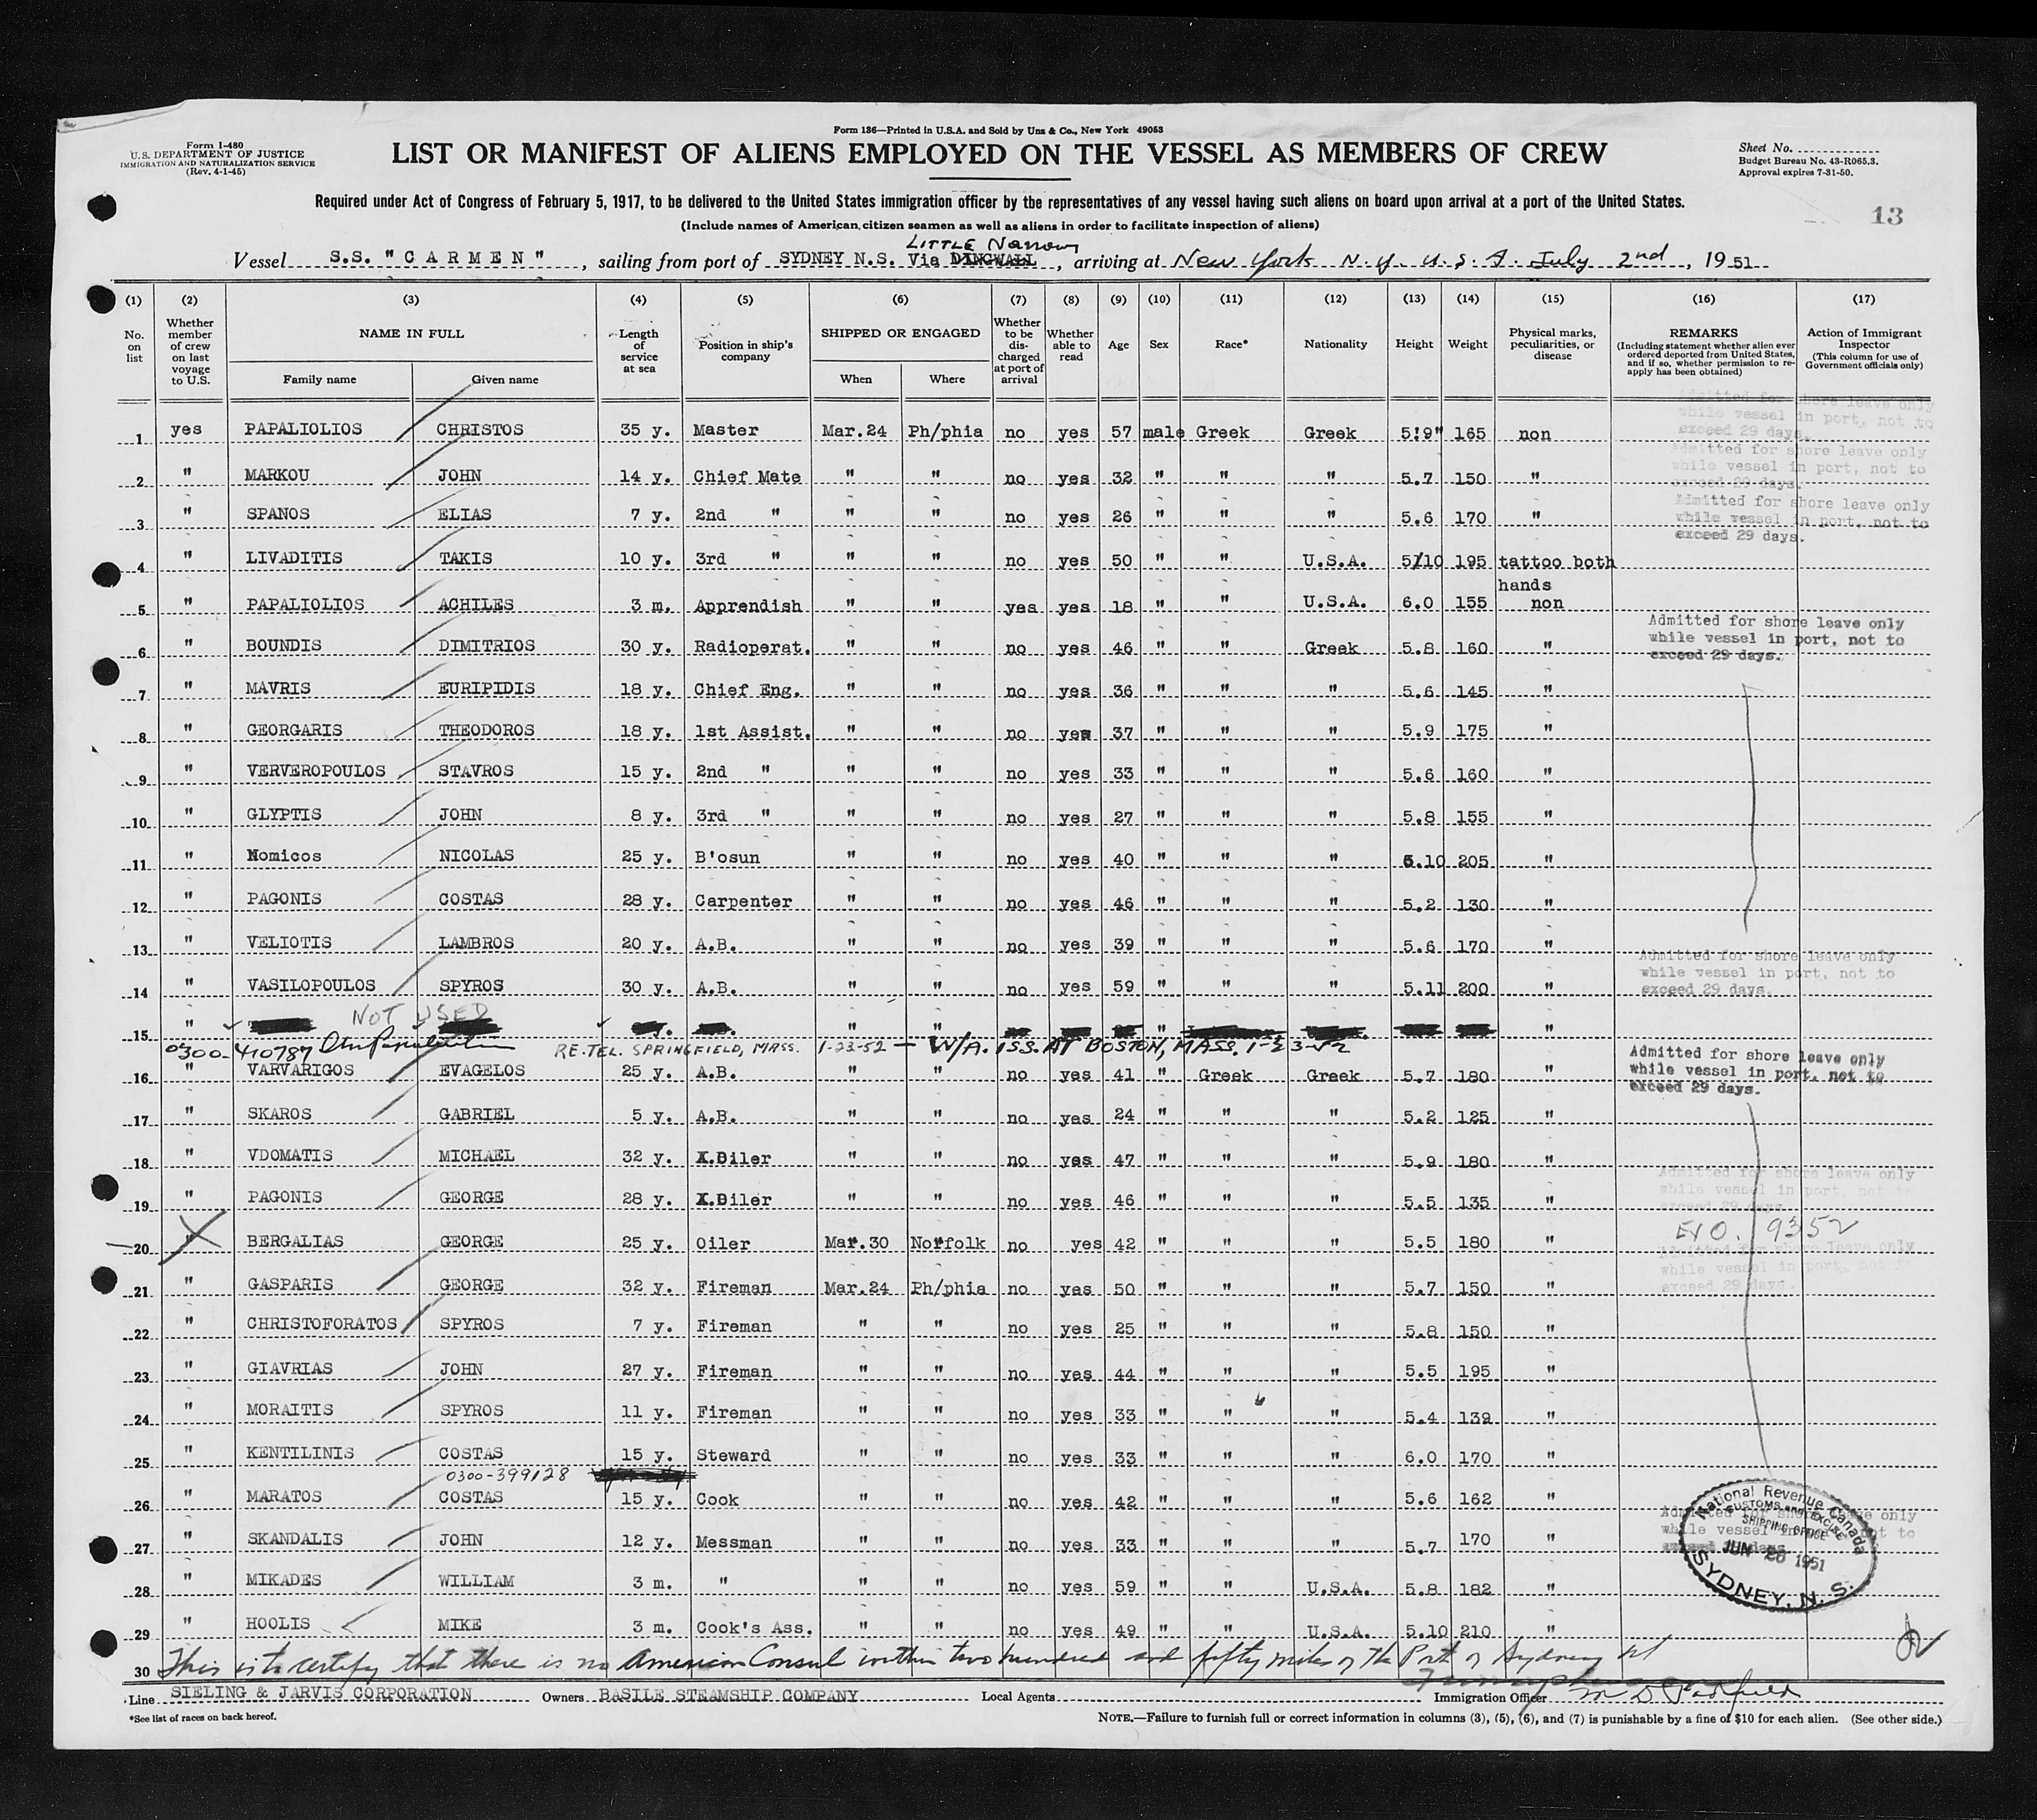 Form 136—Printed in U.S.A. and Sold by Unz & Co., New York 49053
Form I-480
U.S. DEPARTMENT OF JUSTICE
IMMIGRATION AND NATURALIZATION SERVICE
(Rev. 4-1-45)
LIST OR MANIFEST OF ALIENS EMPLOYED ON THE VESSEL AS MEMBERS OF CREW
Sheet No.
Budget Bureau No. 43-R065.3.
Approval expires 7-31-50.
Required under Act of Congress of February 5, 1917, to be delivered to the United States immigration officer by the representatives of any vessel having such aliens on board upon arrival at a port of the United States.
13
(Include names of American citizen seamen as well as aliens in order to facilitate inspection of aliens)
LITTLE Narrows
Vessel S.S. "CARMEN", sailing from port of SYDNEY N.S. Via DINGWALL, arriving at New York N.Y. U.S.A. July 2nd, 1951
(1) (2) (3) (4) (5) (6) (7) (8) (9) (10) (11) (12) (13) (14) (15) (16) (17)
No. on list
Whether member of crew on last voyage to U.S.
NAME IN FULL
Family name Given name
Length of service at sea
Position in ship's company
SHIPPED OR ENGAGED
When Where
Whether to be discharged at port of arrival
Whether able to read
Age
Sex
Race*
Nationality
Height
Weight
Physical marks, peculiarities, or disease
REMARKS
(Including statement whether alien ever ordered deported from United States, and if so, whether permission to reapply has been obtained)
Action of Immigrant Inspector
(This column for use of Government officials only)
Admitted for shore leave only
while vessel in port, not to
exceed 29 days.
1 yes PAPALIOLIOS CHRISTOS 35 y. Master Mar.24 Ph/phia no yes 57 male Greek Greek 5!9" 165 non
Admitted for shore leave only
while vessel in port, not to
exceed 29 days.
2 " MARKOU JOHN 14 y. Chief Mate " " no yes 32 " " " 5.7 150 "
Admitted for shore leave only
while vessel in port, not to
exceed 29 days.
3 " SPANOS ELIAS 7 y. 2nd " " " no yes 26 " " " 5.6 170 "
4 " LIVADITIS TAKIS 10 y. 3rd " " " no yes 50 " " U.S.A. 5/10 195 tattoo both
hands
5 " PAPALIOLIOS ACHILES 3 m. Apprendish " " yes yes 18 " " U.S.A. 6.0 155 non
Admitted for shore leave only
while vessel in port, not to
exceed 29 days.
6 " BOUNDIS DIMITRIOS 30 y. Radioperat. " " no yes 46 " " Greek 5.8 160 "
7 " MAVRIS EURIPIDIS 18 y. Chief Eng. " " no yes 36 " " " 5.6 145 "
8 " GEORGARIS THEODOROS 18 y. 1st Assist. " " no yes 37 " " " 5.9 175 "
9 " VERVEROPOULOS STAVROS 15 y. 2nd " " " no yes 33 " " " 5.6 160 "
10 " GLYPTIS JOHN 8 y. 3rd " " " no yes 27 " " " 5.8 155 "
11 " Nomicos NICOLAS 25 y. B'osun " " no yes 40 " " " 5.10 205 "
12 " PAGONIS COSTAS 28 y. Carpenter " " no yes 46 " " " 5.2 130 "
13 " VELIOTIS LAMBROS 20 y. A.B. " " no yes 39 " " " 5.6 170 "
Admitted for shore leave only
while vessel in port, not to
exceed 29 days.
14 " VASILOPOULOS SPYROS 30 y. A.B. " " no yes 59 " " " 5.11 200 "
NOT USED
15 " " " " "
0300-410787 RE.TEL. SPRINGFIELD, MASS. 1-23-52 — W/A. ISS. AT BOSTON, MASS. 1-23-52
Admitted for shore leave only
while vessel in port, not to
exceed 29 days.
16 " VARVARIGOS EVAGELOS 25 y. A.B. " " no yes 41 " Greek Greek 5.7 180 "
17 " SKAROS GABRIEL 5 y. A.B. " " no yes 24 " " " 5.2 125 "
18 " VDOMATIS MICHAEL 32 y. Diler " " no yes 47 " " " 5.9 180 "
Admitted for shore leave only
while vessel in port, not to
exceed 29 days
19 " PAGONIS GEORGE 28 y. Diler " " no yes 46 " " " 5.5 135 "
EXO. 9352
20 " BERGALIAS GEORGE 25 y. Oiler Mar.30 Norfolk no yes 42 " " " 5.5 180 "
Admitted for shore leave only
while vessel in port, not to
exceed 29 days.
21 " GASPARIS GEORGE 32 y. Fireman Mar.24 Ph/phia no yes 50 " " " 5.7 150 "
22 " CHRISTOFORATOS SPYROS 7 y. Fireman " " no yes 25 " " " 5.8 150 "
23 " GIAVRIAS JOHN 27 y. Fireman " " no yes 44 " " " 5.5 195 "
24 " MORAITIS SPYROS 11 y. Fireman " " no yes 33 " " " 5.4 139 "
25 " KENTILINIS COSTAS 15 y. Steward " " no yes 33 " " " 6.0 170 "
0300-399128
26 " MARATOS COSTAS 15 y. Cook " " no yes 42 " " " 5.6 162 "
Admitted for shore leave only
while vessel in port, not to
exceed 29 days
National Revenue Canada
CUSTOMS and EXCISE
SHIPPING OFFICE
JUN 26 1951
SYDNEY, N. S.
27 " SKANDALIS JOHN 12 y. Messman " " no yes 33 " " " 5.7 170 "
28 " MIKADES WILLIAM 3 m. " " " no yes 59 " " U.S.A. 5.8 182 "
29 " HOOLIS MIKE 3 m. Cook's Ass. " " no yes 49 " " U.S.A. 5.10 210 "
30 This is to certify that there is no American Consul within two hundred and fifty miles of the Port of Sydney NS
Line SIELING & JARVIS CORPORATION Owners BASILE STEAMSHIP COMPANY Local Agents Immigration Officer
*See list of races on back hereof.
NOTE.—Failure to furnish full or correct information in columns (3), (5), (6), and (7) is punishable by a fine of $10 for each alien. (See other side.)